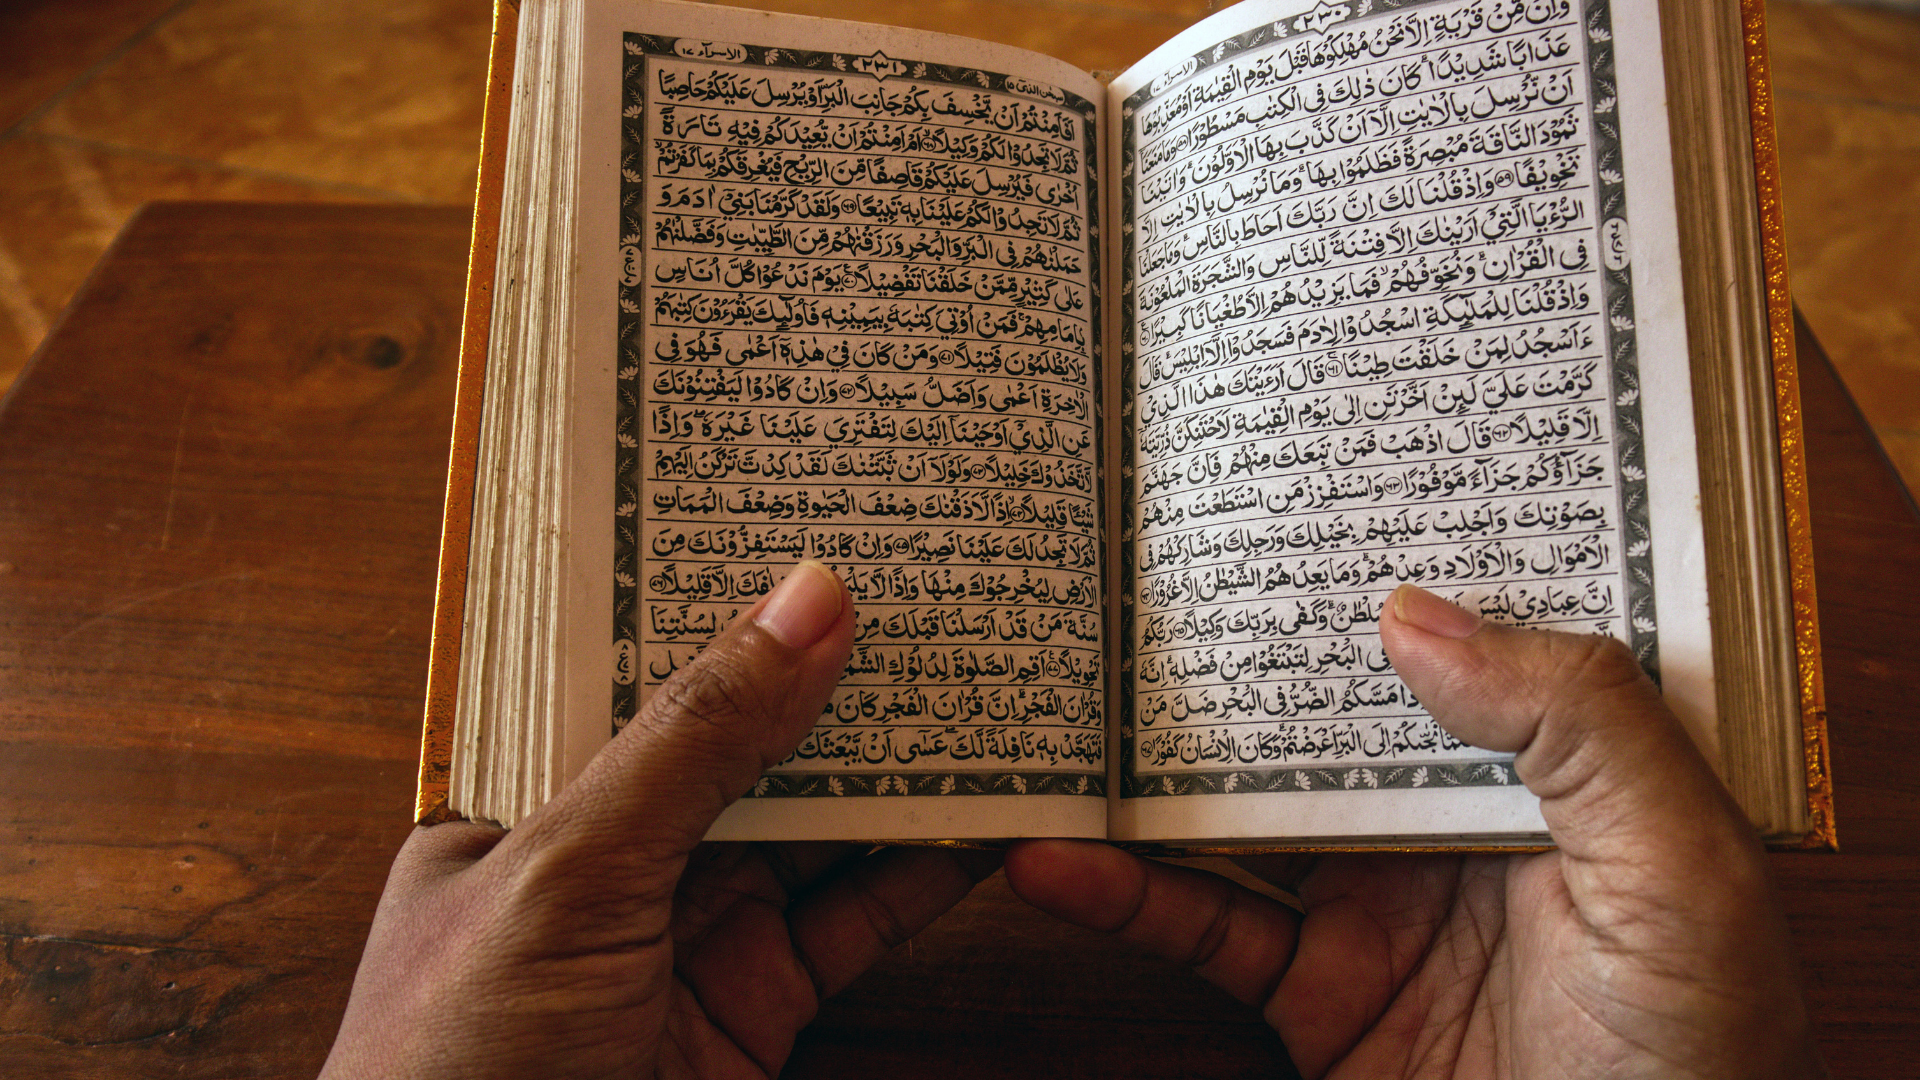 ٢٣٠
الاسرآء ١٧
وَاِنْ مِّنْ قَرْيَةٍ اِلَّا نَحْنُ مُهْلِكُوْهَا قَبْلَ يَوْمِ الْقِيٰمَةِ اَوْ مُعَذِّبُوْهَا
عَذَابًا شَدِيْدًاۗ كَانَ ذٰلِكَ فِى الْكِتٰبِ مَسْطُوْرًا ٥٨ وَمَا مَنَعَنَآ
اَنْ نُّرْسِلَ بِالْاٰيٰتِ اِلَّآ اَنْ كَذَّبَ بِهَا الْاَوَّلُوْنَۗ وَاٰتَيْنَا
ثَمُوْدَ النَّاقَةَ مُبْصِرَةً فَظَلَمُوْا بِهَاۗ وَمَا نُرْسِلُ بِالْاٰيٰتِ اِلَّا
تَخْوِيْفًا ٥٩ وَاِذْ قُلْنَا لَكَ اِنَّ رَبَّكَ اَحَاطَ بِالنَّاسِۗ وَمَا جَعَلْنَا
الرُّءْيَا الَّتِيْٓ اَرَيْنٰكَ اِلَّا فِتْنَةً لِّلنَّاسِ وَالشَّجَرَةَ الْمَلْعُوْنَةَ
فِى الْقُرْاٰنِۗ وَنُخَوِّفُهُمْۙ فَمَا يَزِيْدُهُمْ اِلَّا طُغْيَانًا كَبِيْرًا ٦٠
وَاِذْ قُلْنَا لِلْمَلٰٓئِكَةِ اسْجُدُوْا لِاٰدَمَ فَسَجَدُوْٓا اِلَّآ اِبْلِيْسَۗ قَالَ
ءَاَسْجُدُ لِمَنْ خَلَقْتَ طِيْنًاۚ ٦١ قَالَ اَرَءَيْتَكَ هٰذَا الَّذِيْ
كَرَّمْتَ عَلَيَّ لَىِٕنْ اَخَّرْتَنِ اِلٰى يَوْمِ الْقِيٰمَةِ لَاَحْتَنِكَنَّ ذُرِّيَّتَهٗٓ
اِلَّا قَلِيْلًا ٦٢ قَالَ اذْهَبْ فَمَنْ تَبِعَكَ مِنْهُمْ فَاِنَّ جَهَنَّمَ
جَزَاۤؤُكُمْ جَزَاۤءً مَّوْفُوْرًا ٦٣ وَاسْتَفْزِزْ مَنِ اسْتَطَعْتَ مِنْهُمْ
بِصَوْتِكَ وَاَجْلِبْ عَلَيْهِمْ بِخَيْلِكَ وَرَجِلِكَ وَشَارِكْهُمْ فِى
الْاَمْوَالِ وَالْاَوْلَادِ وَعِدْهُمْۗ وَمَا يَعِدُهُمُ الشَّيْطٰنُ اِلَّا غُرُوْرًا ٦٤
اِنَّ عِبَادِيْ لَيْسَ سُلْطٰنٌۗ وَكَفٰى بِرَبِّكَ وَكِيْلًا ٦٥ رَبُّكُمُ
فِى الْبَحْرِ لِتَبْتَغُوْا مِنْ فَضْلِهٖۗ اِنَّهٗ
مَسَّكُمُ الضُّرُّ فِى الْبَحْرِ ضَلَّ مَنْ
نَجّٰىكُمْ اِلَى الْبَرِّ اَعْرَضْتُمْۗ وَكَانَ الْاِنْسَانُ كَفُوْرًا ٦٧
سبحن الذىٓ ١٥
٢٣١
الاسرآء ١٧
اَفَاَمِنْتُمْ اَنْ يَّخْسِفَ بِكُمْ جَانِبَ الْبَرِّ اَوْ يُرْسِلَ عَلَيْكُمْ حَاصِبًا
ثُمَّ لَا تَجِدُوْا لَكُمْ وَكِيْلًاۙ ٦٨ اَمْ اَمِنْتُمْ اَنْ يُّعِيْدَكُمْ فِيْهِ تَارَةً
اُخْرٰى فَيُرْسِلَ عَلَيْكُمْ قَاصِفًا مِّنَ الرِّيْحِ فَيُغْرِقَكُمْ بِمَا كَفَرْتُمْۙ
ثُمَّ لَا تَجِدُوْا لَكُمْ عَلَيْنَا بِهٖ تَبِيْعًا ٦٩ وَلَقَدْ كَرَّمْنَا بَنِيْٓ اٰدَمَ وَ
حَمَلْنٰهُمْ فِى الْبَرِّ وَالْبَحْرِ وَرَزَقْنٰهُمْ مِّنَ الطَّيِّبٰتِ وَفَضَّلْنٰهُمْ
عَلٰى كَثِيْرٍ مِّمَّنْ خَلَقْنَا تَفْضِيْلًا ٧٠ يَوْمَ نَدْعُوْا كُلَّ اُنَاسٍۢ
بِاِمَامِهِمْۚ فَمَنْ اُوْتِيَ كِتٰبَهٗ بِيَمِيْنِهٖ فَاُولٰۤىِٕكَ يَقْرَءُوْنَ كِتٰبَهُمْ
وَلَا يُظْلَمُوْنَ فَتِيْلًا ٧١ وَمَنْ كَانَ فِيْ هٰذِهٖٓ اَعْمٰى فَهُوَ فِى
الْاٰخِرَةِ اَعْمٰى وَاَضَلُّ سَبِيْلًا ٧٢ وَاِنْ كَادُوْا لَيَفْتِنُوْنَكَ
عَنِ الَّذِيْٓ اَوْحَيْنَآ اِلَيْكَ لِتَفْتَرِيَ عَلَيْنَا غَيْرَهٗۖ وَاِذًا
لَّاتَّخَذُوْكَ خَلِيْلًا ٧٣ وَلَوْلَآ اَنْ ثَبَّتْنٰكَ لَقَدْ كِدْتَّ تَرْكَنُ اِلَيْهِمْ
شَيْـًٔا قَلِيْلًاۙ ٧٤ اِذًا لَّاَذَقْنٰكَ ضِعْفَ الْحَيٰوةِ وَضِعْفَ الْمَمَاتِ
ثُمَّ لَا تَجِدُ لَكَ عَلَيْنَا نَصِيْرًا ٧٥ وَاِنْ كَادُوْا لَيَسْتَفِزُّوْنَكَ مِنَ
الْاَرْضِ لِيُخْرِجُوْكَ مِنْهَا وَاِذًا لَّا اِلَّا قَلِيْلًا ٧٦
سُنَّةَ مَنْ قَدْ اَرْسَلْنَا قَبْلَكَ مِنْ لِسُنَّتِنَا
تَحْوِيْلًا ٧٧ اَقِمِ الصَّلٰوةَ لِدُلُوْكِ
وَقُرْاٰنَ الْفَجْرِۗ اِنَّ قُرْاٰنَ الْفَجْرِ كَانَ
فَتَهَجَّدْ بِهٖ نَافِلَةً لَّكَۖ عَسٰٓى اَنْ يَّبْعَثَكَ